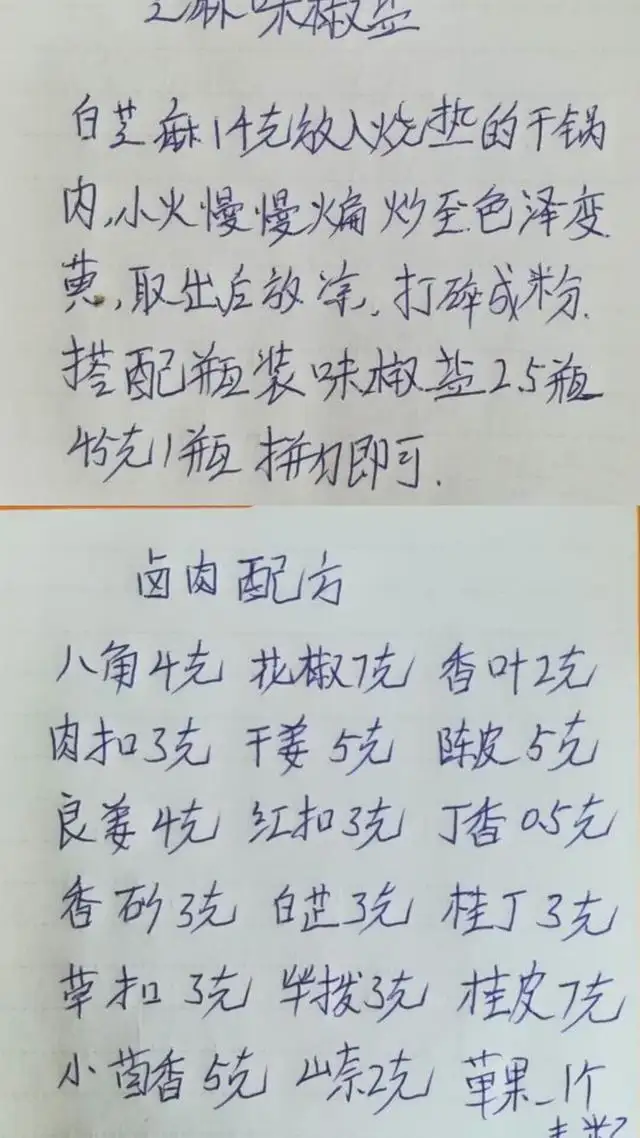 芝麻味椒盐
白芝麻14克放入烧热的干锅
内,小火慢慢煸炒至色泽变
黄,取出后放凉,打碎成粉.
搭配瓶装味椒盐2.5瓶
45克1瓶 拼匀即可.
卤肉配方
八角4克 花椒7克 香叶2克
肉扣3克 干姜5克 陈皮5克
良姜4克 红扣3克 丁香0.5克
香砂3克 白芷3克 桂丁3克
草扣3克 毕拨3克 桂皮7克
小茴香5克 山奈2克 草果_1个